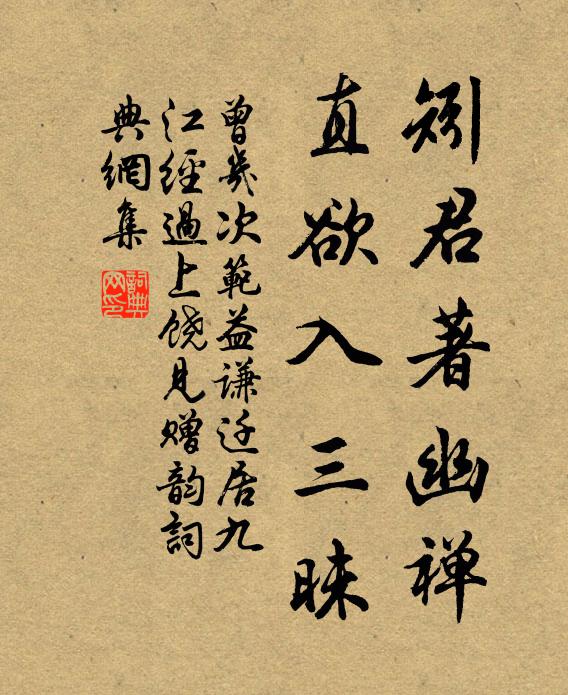 矧君著幽禅
直欲入三昧
曾幾次範益謙迁居九
江經過上饶見贈韵詞
典網集
詞典
网印